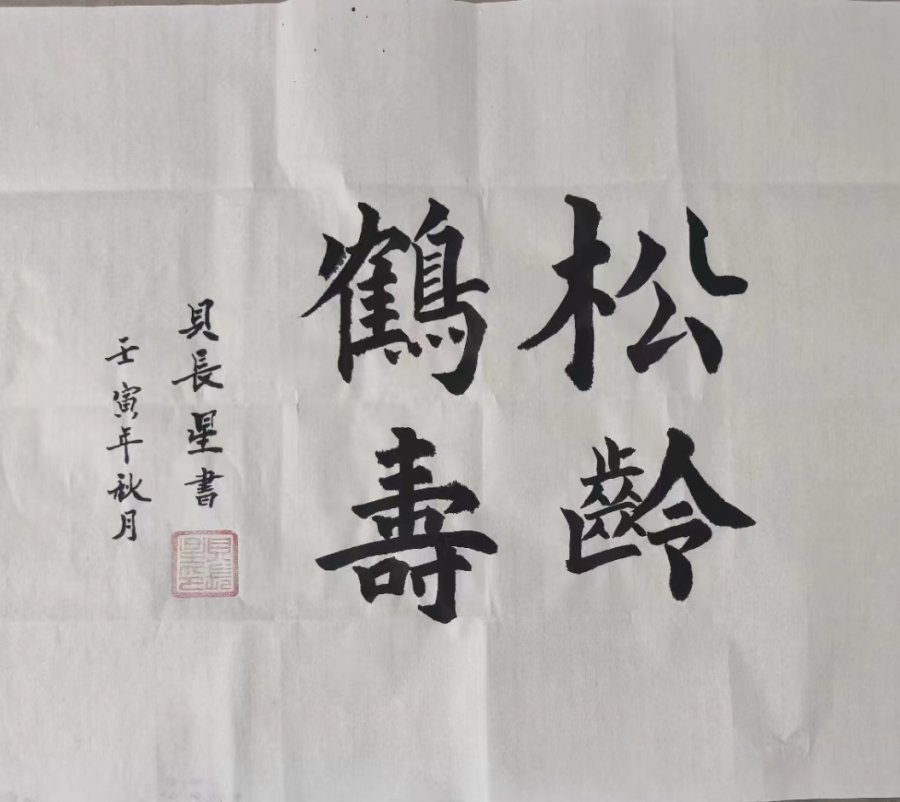 松齡
鶴壽
貝長星書
壬寅年秋月